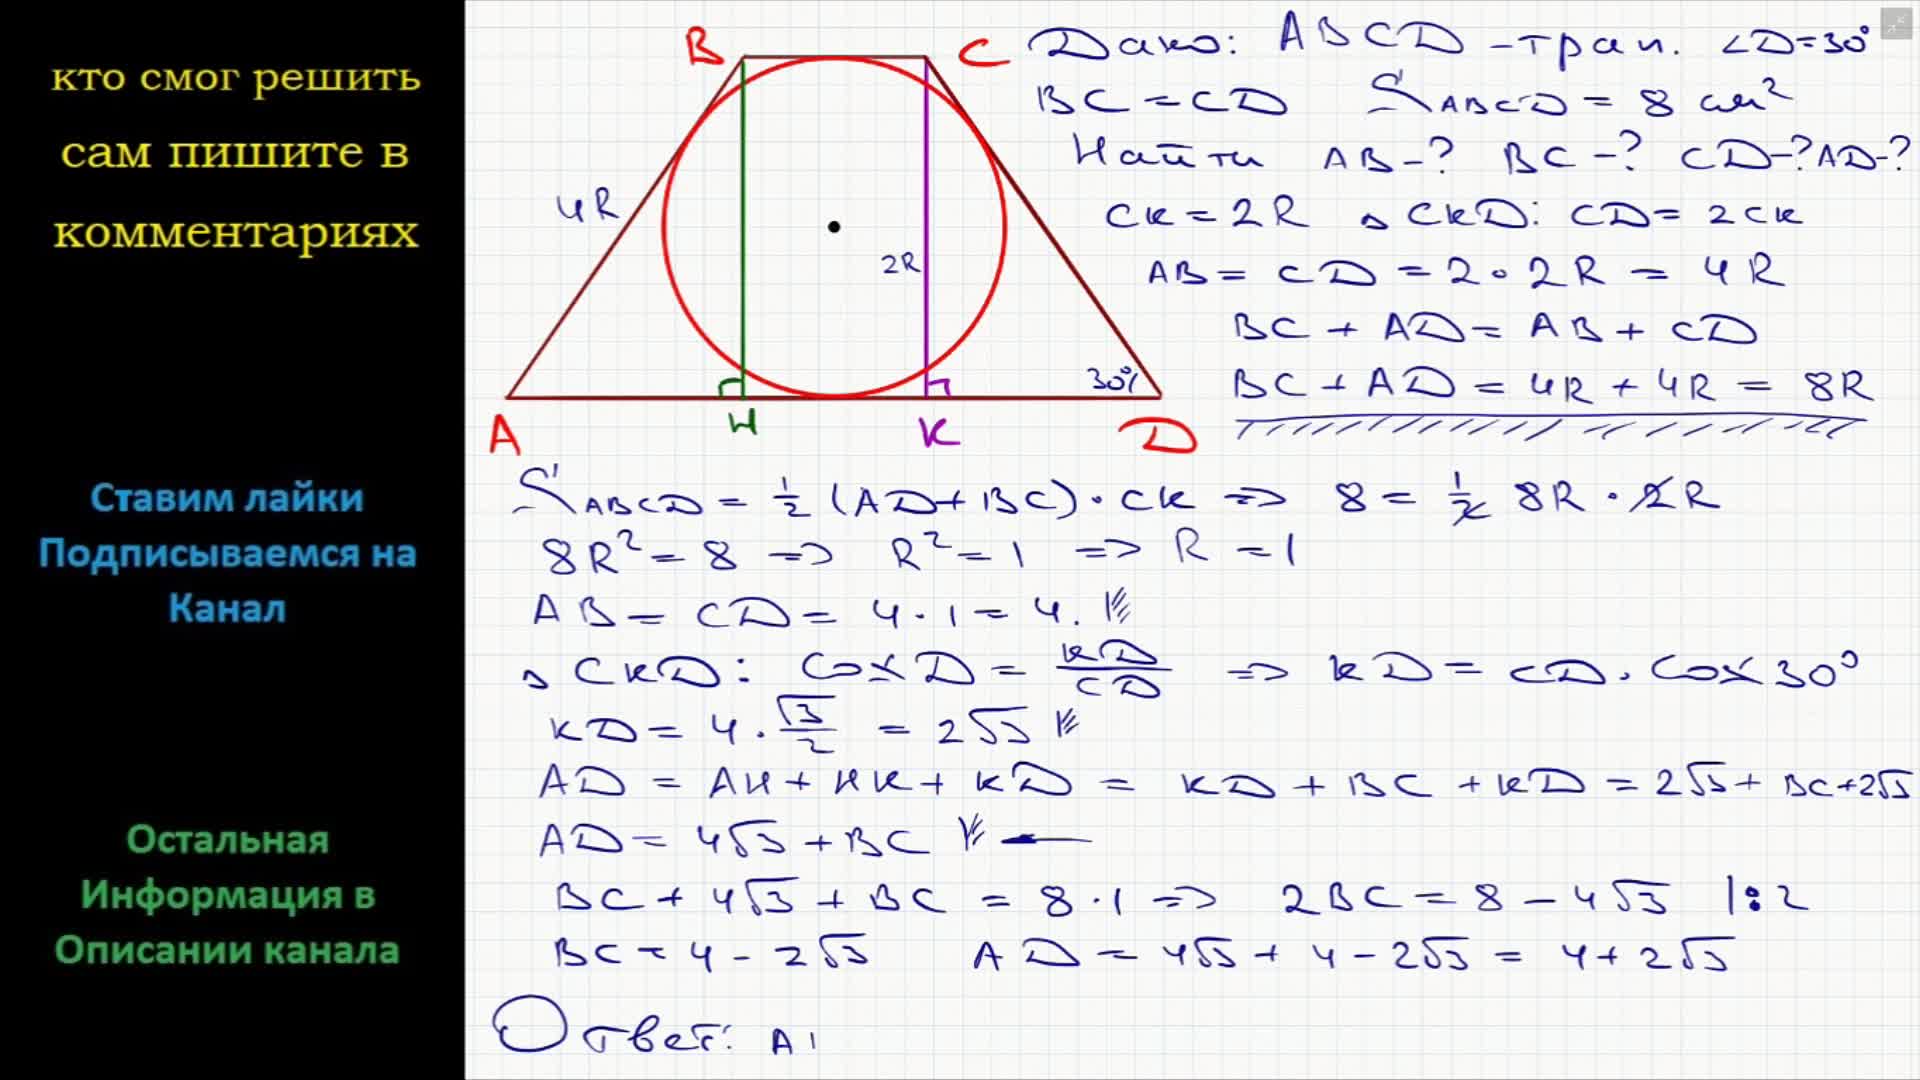 кто смог решить
сам пишите в
комментариях
Ставим лайки
Подписываемся на
Канал
Остальная
Информация в
Описании канала
B
C
4R
2R
30°
A
H
K
D
Дано: ABCD - трап. ∠D=30°
BC = CD S ABCD = 8 см²
Найти AB-? BC-? CD-? AD-?
CK = 2R △CKD: CD = 2CK
AB = CD = 2 · 2R = 4R
BC + AD = AB + CD
BC + AD = 4R + 4R = 8R
S ABCD = 1/2 (AD+BC) · CK => 8 = 1/2 8R · 2R
8R² = 8 => R² = 1 => R = 1
AB = CD = 4 · 1 = 4.
△CKD: cos D = KD/CD => KD = CD · cos 30°
KD = 4 · √3/2 = 2√3
AD = AH + HK + KD = KD + BC + KD = 2√3 + BC + 2√3
AD = 4√3 + BC
BC + 4√3 + BC = 8 · 1 => 2BC = 8 - 4√3 |:2
BC = 4 - 2√3 AD = 4√3 + 4 - 2√3 = 4 + 2√3
Ответ: A